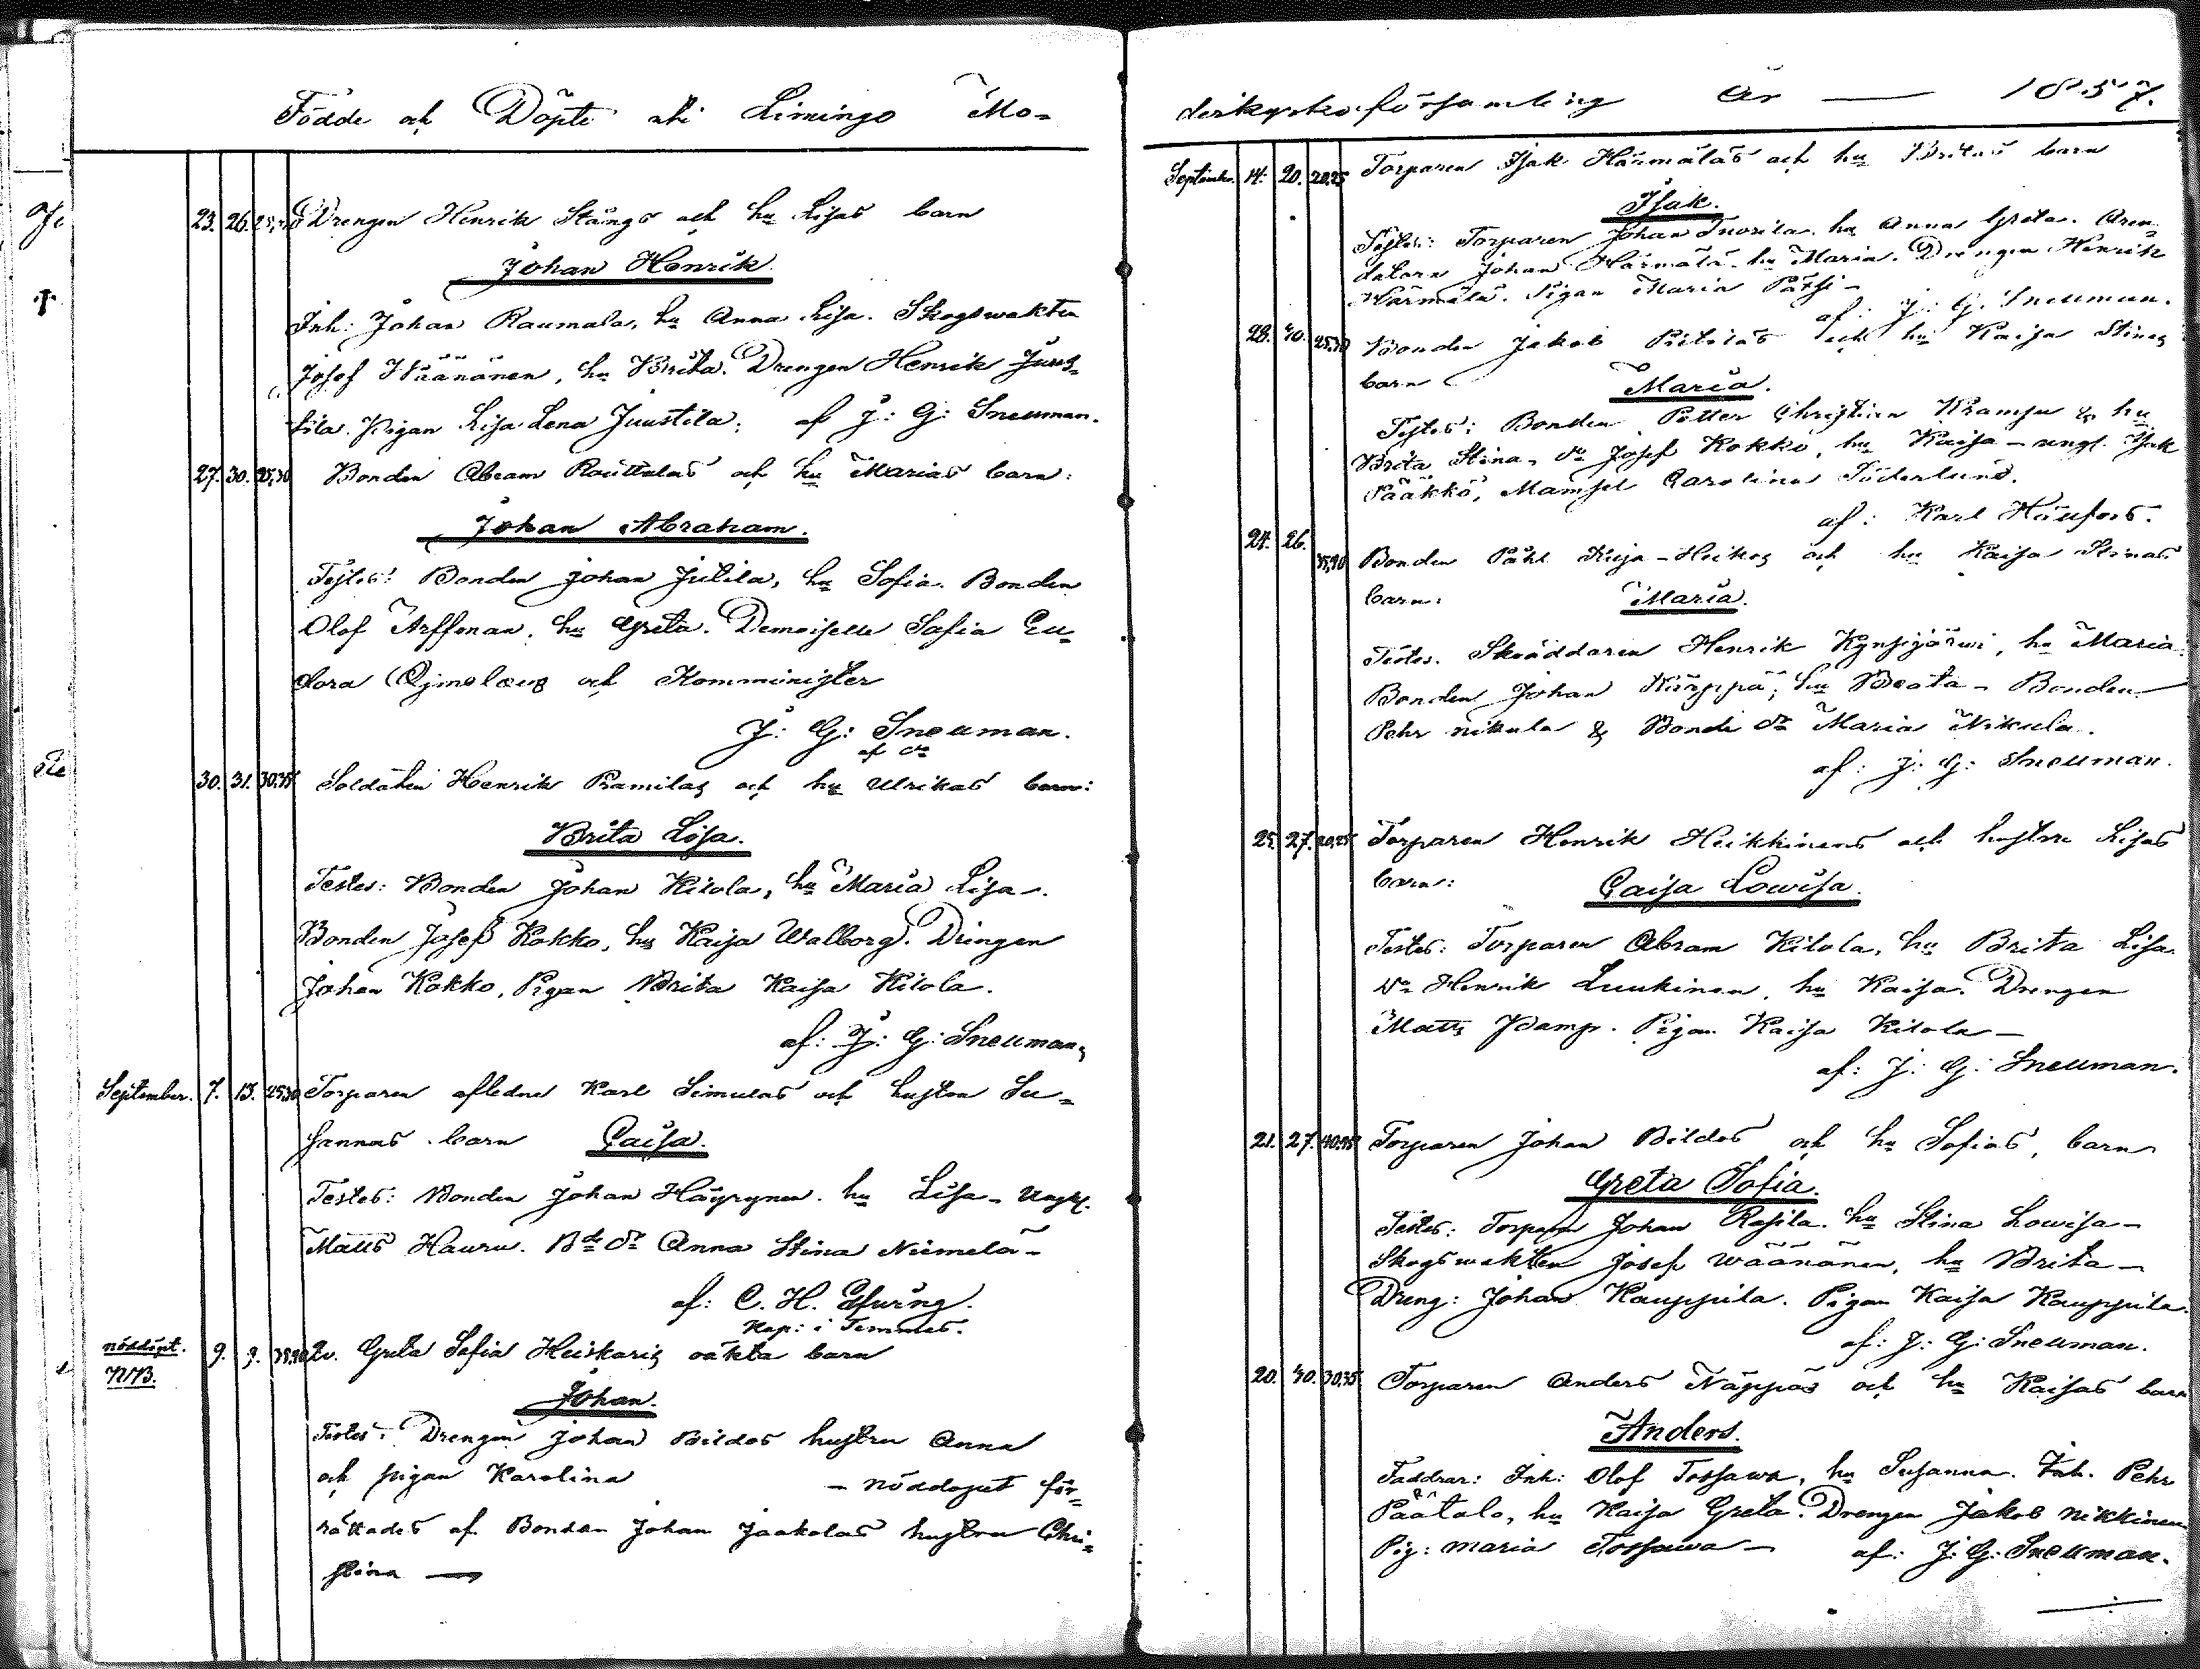 Födde och Döpte uti Limingo Mo-
23. 26. Drengen Henrik Stångs och hu Lisas barn
Johan Henrik.
Inh: Johan Raumala, hu Anna Lisa. Skogswakten
Josef Wäänänen, hu Brita. Drengen Henrik Juus-
tila. Pigan Lisa Lena Juustila. af J: G: Sneuman.
27. 30. 25,30 Bonden Abram Routtulas och hu Marias barn:
Johan Abraham.
Testes: Bonden Johan Jutila, hu Sofia. Bonden
Olof Arffman, hu Greta. Demoiselle Sofia Eu-
dora Qjmelæus och Komminister
J: G: Sneuman.
af do
30. 31. 30,35 Soldaten Henrik Ramilas och hu Ulrikas barn:
Brita Lisa.
Testes: Bonden Johan Kitola, hu Maria Lisa.
Bonden Josef Kokko, hu Kaisa Walborg. Drengen
Johan Kokko, Pigan Brita Kaisa Kitola.
af: J: G: Sneuman,
September. 7. 13. 25,30 Torparen afledne Karl Simulas och hustru Su-
sannas barn Caisa.
Testes: Bonden Johan Häyrynen. hu Lisa - Ungk.
Matts Hauru. Bde dr Anna Stina Niemelä -
af: C. H.
Kap: i Temmes.
nöddöpt. 9. 9. 35,40 Qv. Greta Sofia Heiskaris oäkta barn
NB.
Johan.
Testes: Drengen Johan Bildos hustru Anna
och pigan Karolina - nöddopet för-
rättades af Bonden Johan Jaakolas hustru Chri-
stina —
derkyrko församling År — 1857.
September. 14. 20. 20,25 Torparen Isak Härmäläs och hu Britas barn
Isak.
Testes: Torparen Johan Tuorila. hu Anna Greta. Aren-
datorn Johan Härmälä. hu Maria. Drengen Henrik
Härmälä. Pigan Maria Pätsi -
af: J: G: Sneuman.
28. 40. 25,30 Bonden Jakob Pietiläs och hu Kaisa Stinas
barn Maria.
Testes: Bonden Petter Christian Kramsu & hu
Brita Stina, do Josef Kokko, hu Kaisa - ungk. Isak
Pääkkö, Mamsel Carolina Söderlund.
af: Karl Höckfors.
24. 26. 35,40 Bonden Påhl Kuja-Heikas och hu Kaisa Stinas
barn: Maria.
Testes. Skräddaren Henrik Kynsijärwi, hu Maria
Bonden Johan Kärppä, hu Beata - Bonden
Pehr Nikula & Bonde dr Maria Nikula.
af: J: G: Sneuman.
25. 27. 20,25 Torparen Henrik Heikkinens och hustru Lisas
barn: Caisa Lowisa.
Testes: Torparen Abram Kitola, hu Brita Lisa.
do Henrik Luukinen, hu Kaisa. Drengen
Matts Kamp. Pigan Kaisa Kitola -
af: J: G: Sneuman.
21. 27. 40,45 Torparen Johan Bildos och hu Sofias, barn
Greta Sofia.
Testes: Torparen Johan Rasila. hu Stina Lowisa -
Skogswakten Josef Wäänänen, hu Brita -
Dreng: Johan Kauppila. Pigan Kaisa Kauppila.
af: J: G: Sneuman.
20. 40. 30,35 Torparen Anders Näppäs och hu Kaisas barn
Anders.
Faddrar: Inh: Olof Tossawa, hu Susanna. Inh. Pehr
Päätalo, hu Kaisa Greta. Drengen Jakob Nikkinen
Pig: Maria Tossawa - af: J. G: Sneuman.